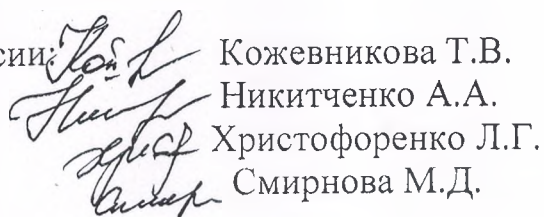 сии: Кожевникова Т.В.
Никитченко А.А.
Христофоренко Л.Г.
Смирнова М.Д.